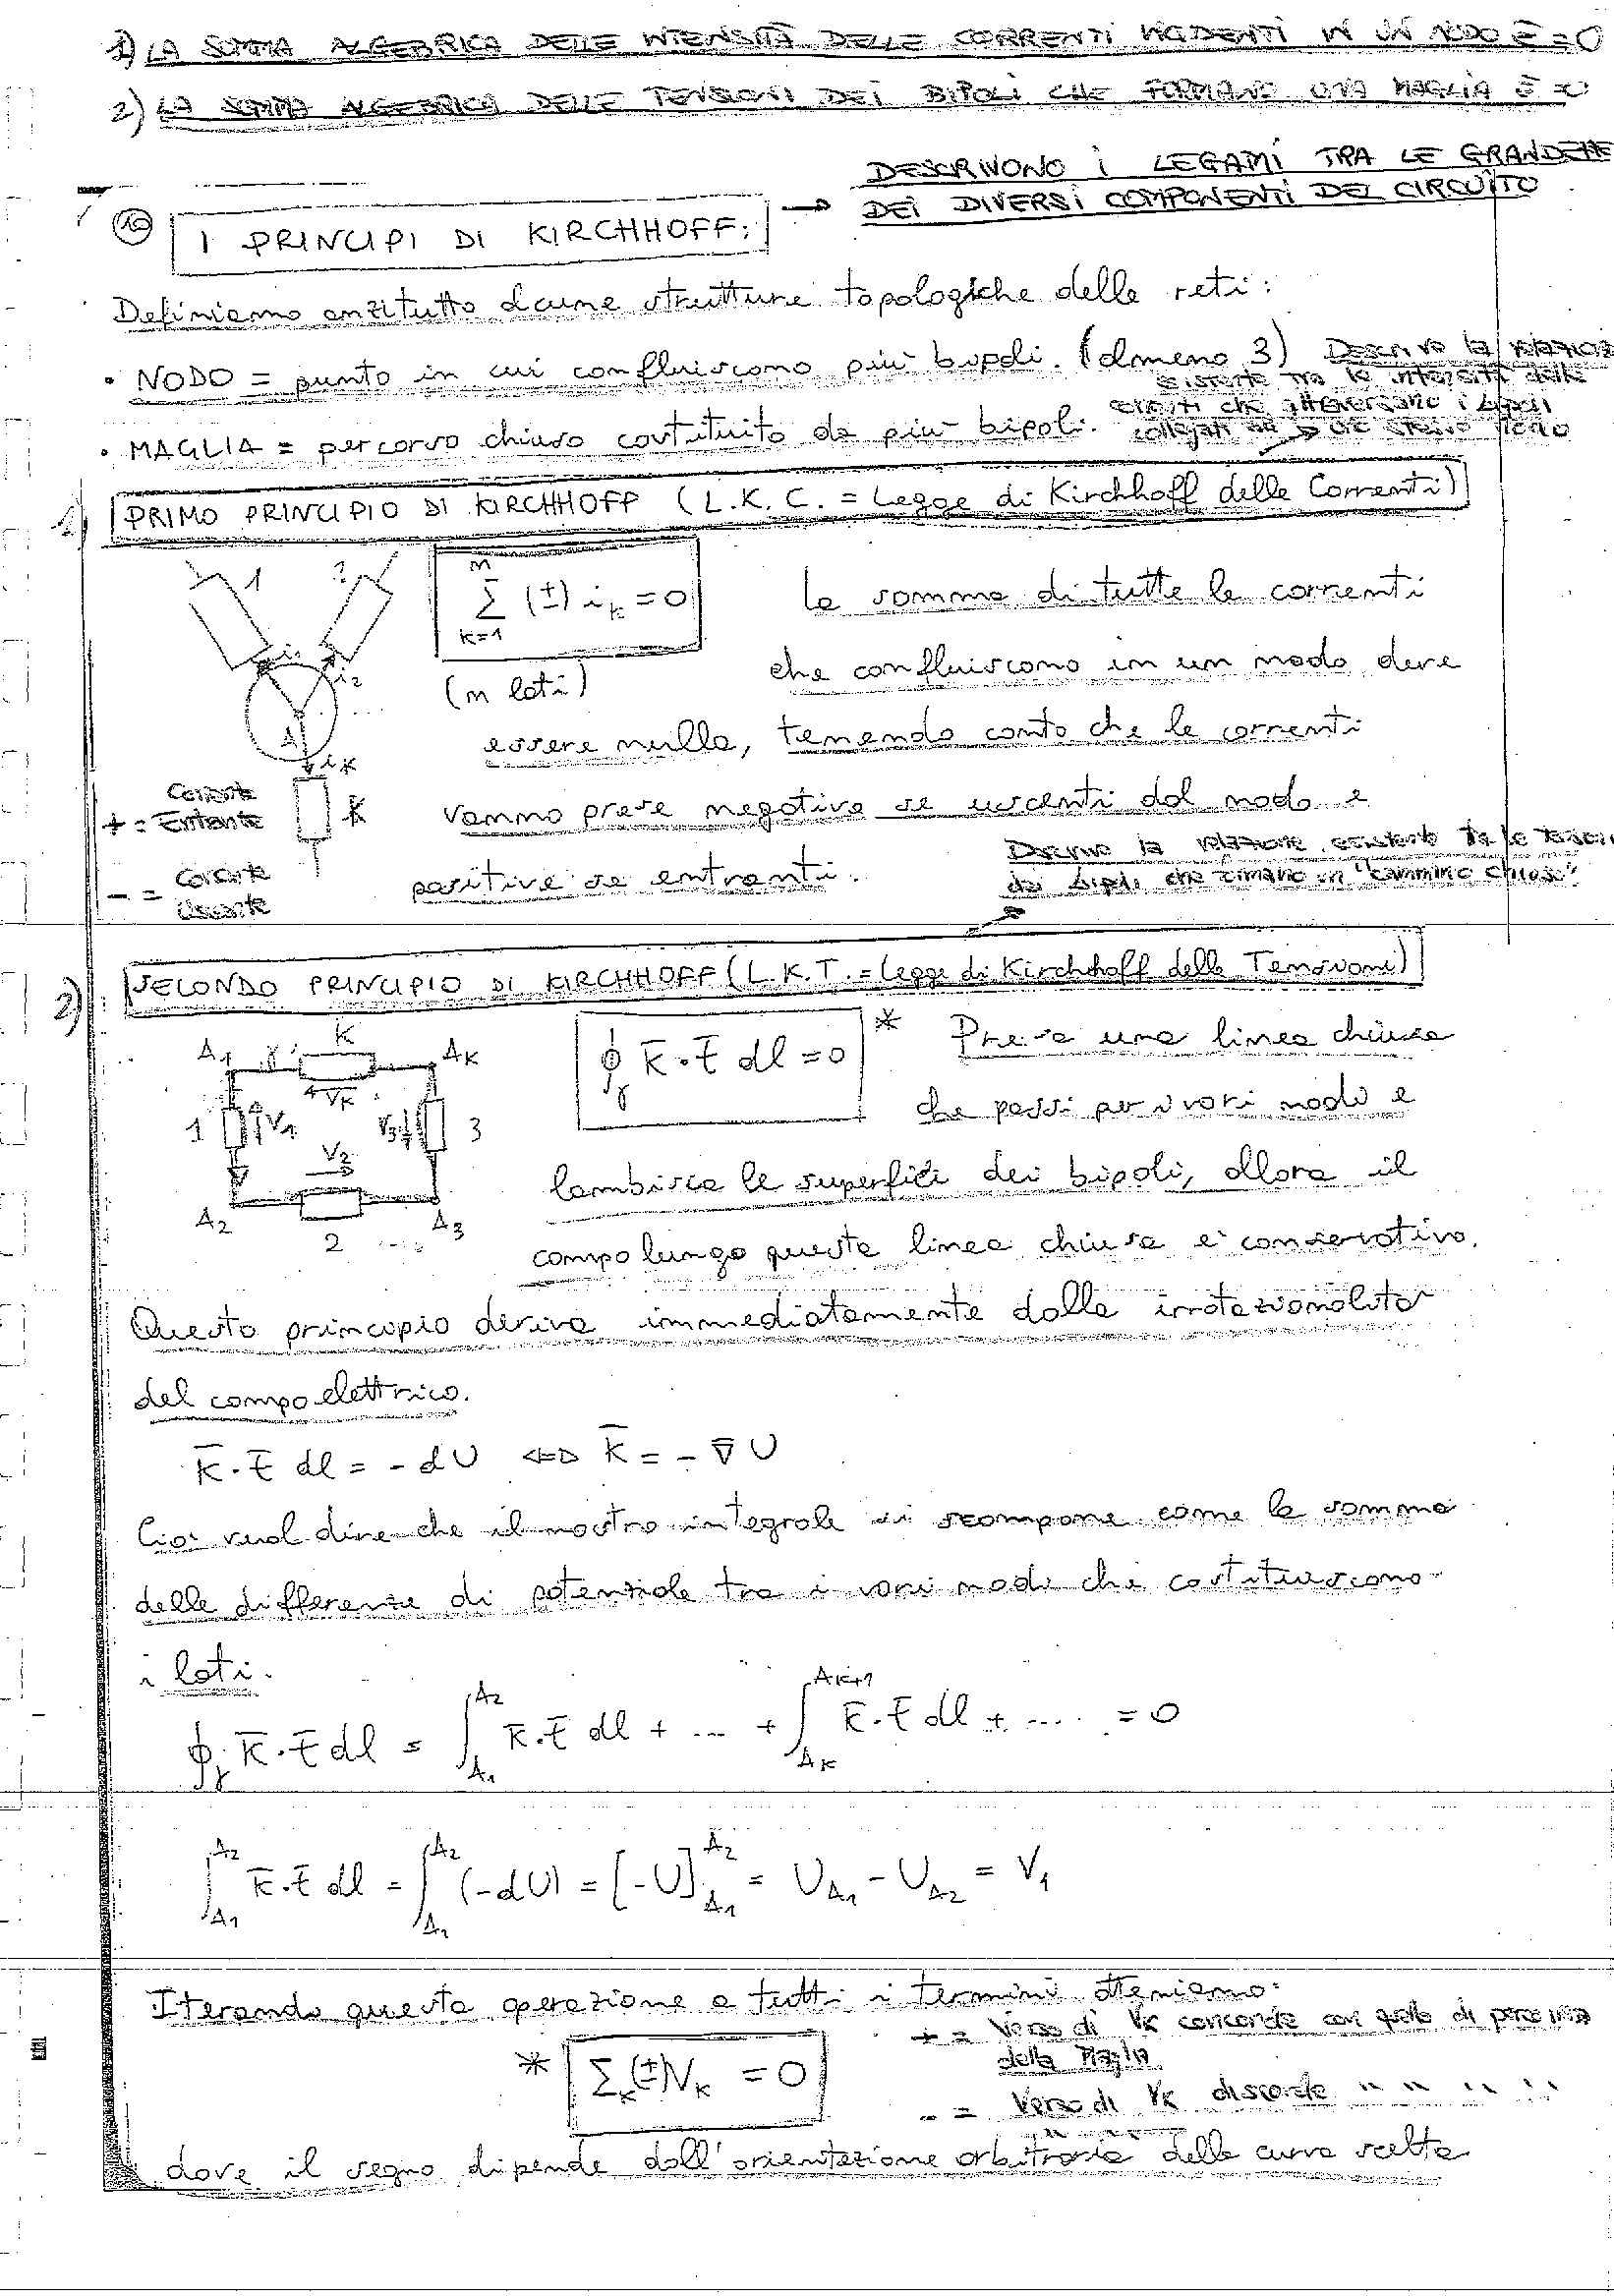 1) LA SOMMA ALGEBRICA DELLE INTENSITÀ DELLE CORRENTI INCIDENTI IN UN NODO È =0
2) LA SOMMA ALGEBRICA DELLE TENSIONI DEI BIPOLI CHE FORMANO UNA MAGLIA È =0
DESCRIVONO I LEGAMI TRA LE GRANDEZZE
DEI DIVERSI COMPONENTI DEL CIRCUITO
10 I PRINCIPI DI KIRCHHOFF: →
Definiamo anzitutto alcune strutture topologiche delle reti:
• NODO = punto in cui confluiscono più bipoli. (almeno 3)
Descrive la relazione
esistente tra le intensità delle
correnti che attraversano i bipoli
collegati ad uno stesso nodo
• MAGLIA = percorso chiuso costituito da più bipoli.
1) PRIMO PRINCIPIO DI KIRCHHOFF (L.K.C. = Legge di Kirchhoff delle Correnti)
1 2 i1 i2 A iK K
n Σ K=1 (±) iK = 0
(n lati)
La somma di tutte le correnti
che confluiscono in un nodo deve
essere nulla, tenendo conto che le correnti
vanno prese negative se uscenti dal nodo e
positive se entranti.
+ = Corrente Entrante
- = Corrente Uscente
Descrive la relazione esistente tra le tensioni
dei bipoli che formano un "cammino chiuso"
2) SECONDO PRINCIPIO DI KIRCHHOFF (L.K.T. = Legge di Kirchhoff delle Tensioni)
A1 γ K AK
VK
1 V1 V3 3
V2
A2 2 .... A3
∮γ K̄·t̄ dl = 0 *
Presa una linea chiusa
che passi per i vari nodi e
lambisca le superfici dei bipoli, allora il
campo lungo questa linea chiusa è conservativo.
Questo principio deriva immediatamente dalla irrotazionalità
del campo elettrico.
K̄·t̄ dl = - dU ⇔ K̄ = - ∇̄ U
Ciò vuol dire che il nostro integrale si scompone come la somma
delle differenze di potenziale tra i vari nodi che costituiscono
i lati.
∮γ K̄·t̄ dl = ∫A1^A2 K̄·t̄ dl + ... + ∫AK^AK+1 K̄·t̄ dl + .... = 0
∫A1^A2 K̄·t̄ dl = ∫A1^A2 (-dU) = [-U]A1^A2 = UA1 - UA2 = V1
Iterando questa operazione a tutti i termini otteniamo:
* ΣK (±)VK = 0
+ = Verso di VK concorde con quello di percorrenza
della Maglia
- = Verso di VK discorde " " " "
dove il segno dipende dall'orientazione arbitraria della curva scelta